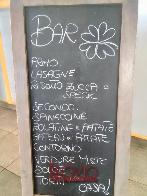 BAR
PRIMO.
LASAGNE
RISOTTO ZUCCA e
SPECK
SECONDO.
SPINACINE
POLPETTINE e PATATE
WURSTEL e PATATE
CONTORNO
VERDURE MISTE
DOLCE
TORTA
CASA!